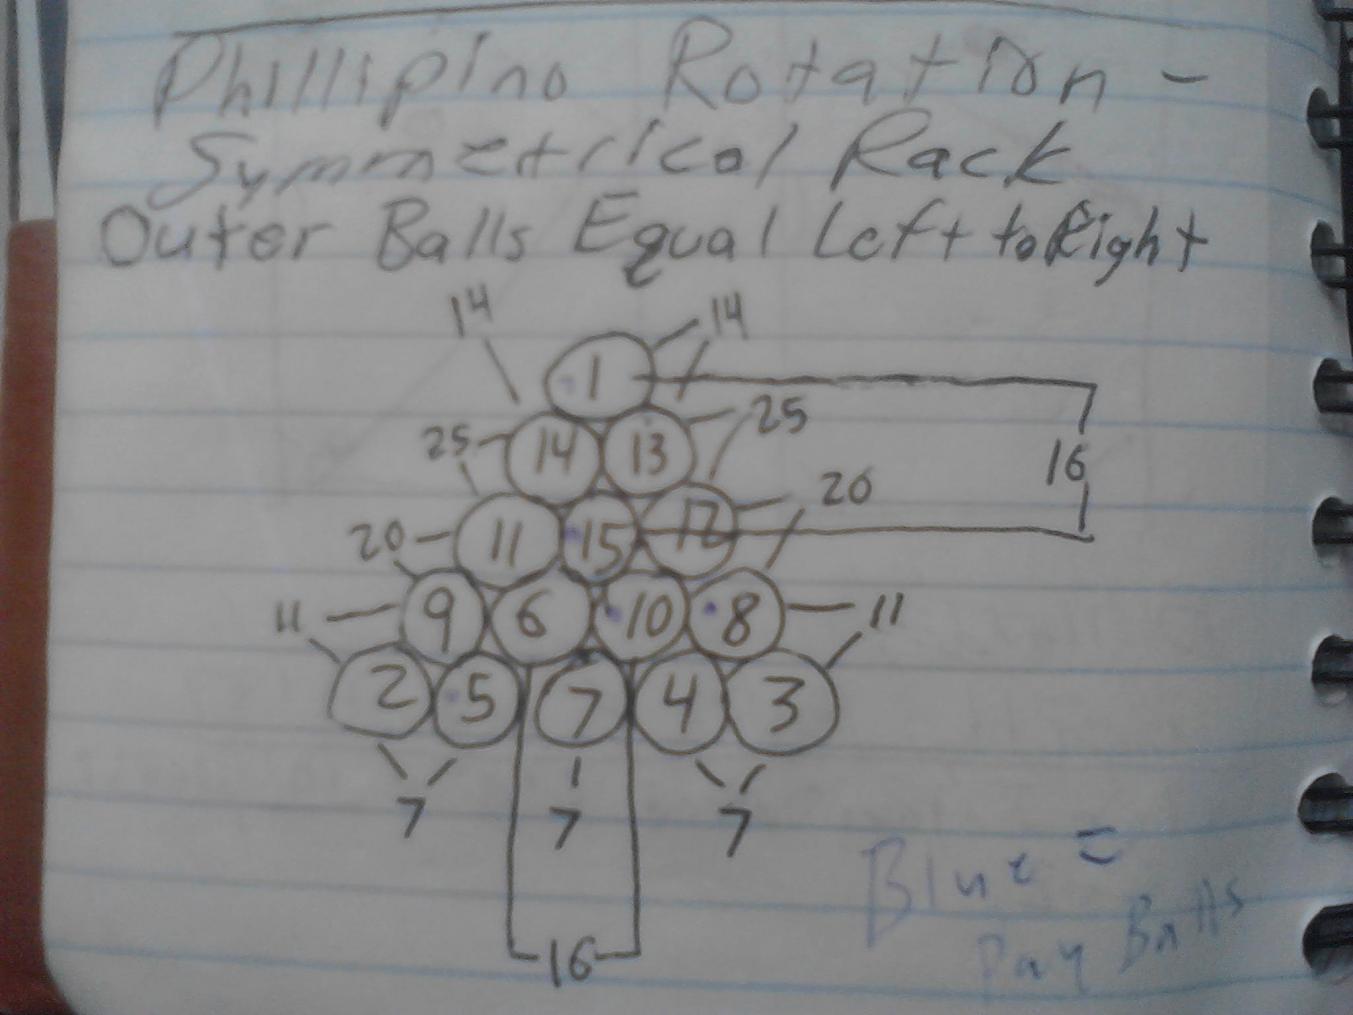 Phillipino Rotation -
Symmetrical Rack
Outer Balls Equal Left to Right
14 14
1
25 14 13 25
16
20 11 15 12 20
11 9 6 10 8 11
2 5 7 4 3
7 7 7
16
Blue =
Pay Balls